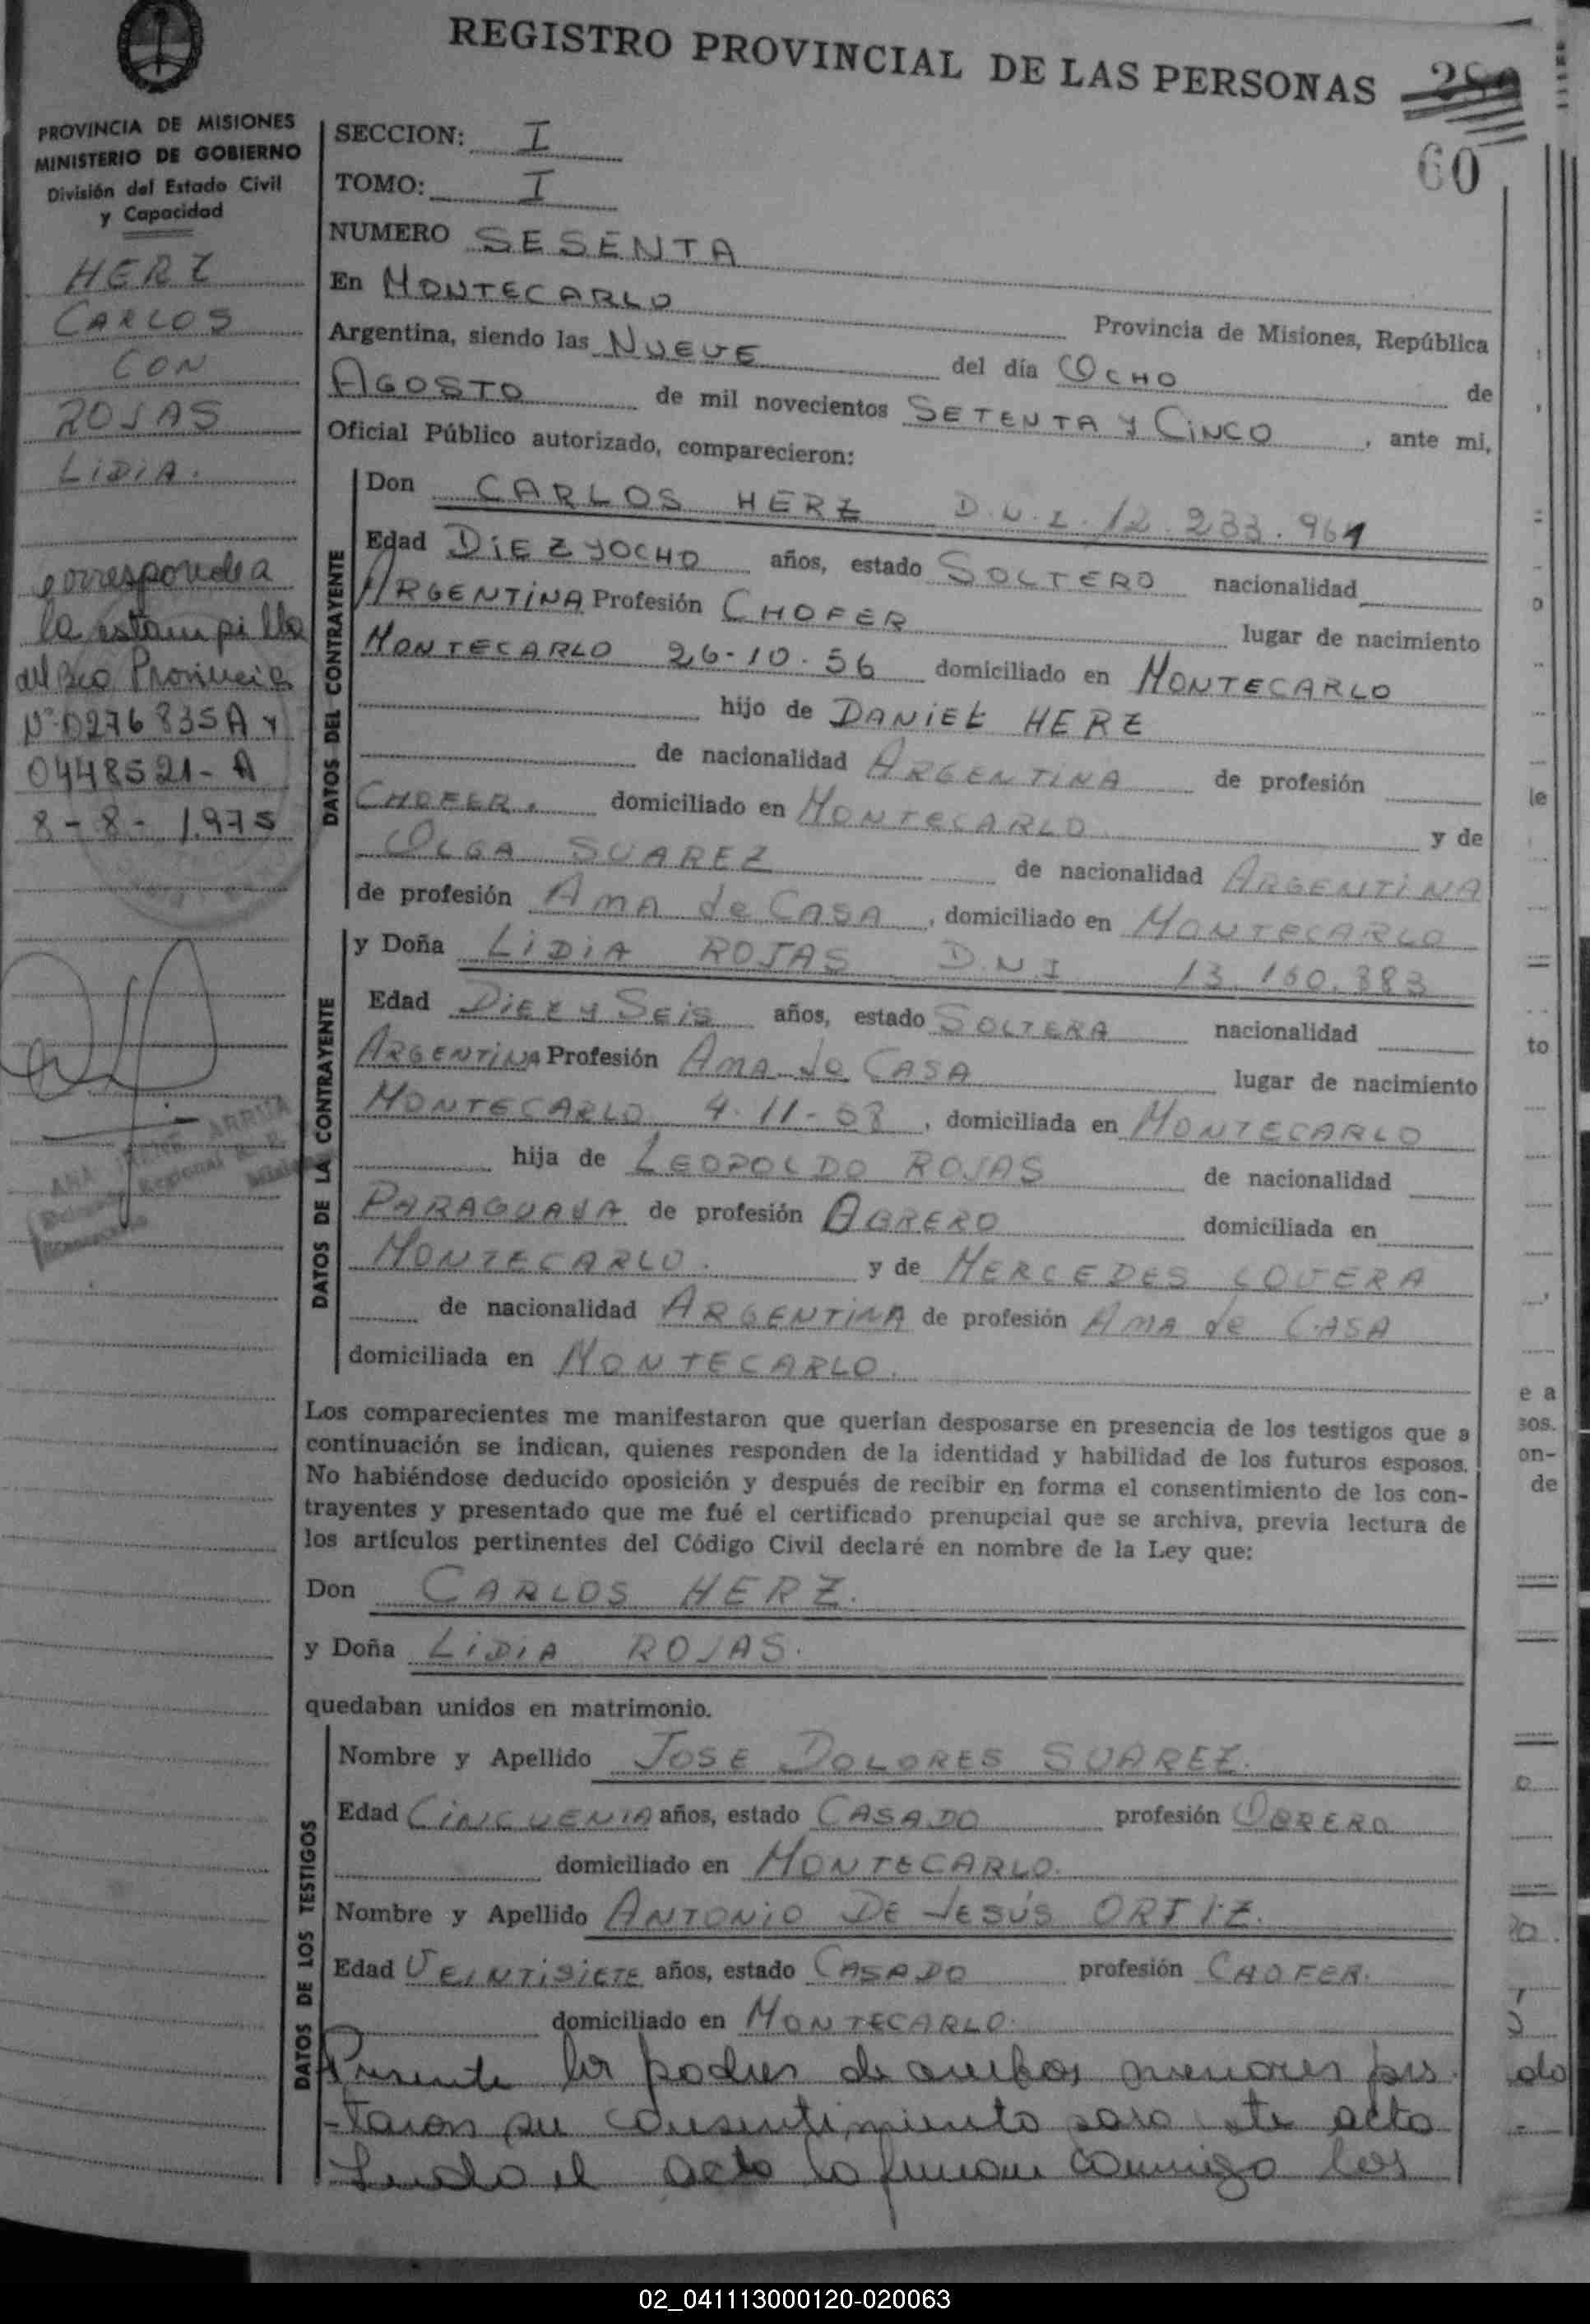 REGISTRO PROVINCIAL DE LAS PERSONAS
60
PROVINCIA DE MISIONES
MINISTERIO DE GOBIERNO
División del Estado Civil
y Capacidad
HERZ
CARLOS
CON
ROJAS
LIDIA.
corresponde a
la estampilla
del Bco Provincia
Nº 0276835A y
0448521-A
8-8-1.975
SECCION: I
TOMO: I
NUMERO SESENTA
En MONTECARLO Provincia de Misiones, República
Argentina, siendo las NUEVE del día OCHO de
AGOSTO de mil novecientos SETENTA Y CINCO, ante mi,
Oficial Público autorizado, comparecieron:
DATOS DEL CONTRAYENTE
Don CARLOS HERZ D.N.I. 12.233.961
Edad DIEZ YOCHO años, estado SOLTERO nacionalidad
ARGENTINA Profesión CHOFER lugar de nacimiento
MONTECARLO 26-10-56 domiciliado en MONTECARLO
hijo de DANIEL HERZ
de nacionalidad ARGENTINA de profesión
CHOFER. domiciliado en MONTECARLO y de
OLGA SUAREZ de nacionalidad ARGENTINA
de profesión AMA de CASA, domiciliado en MONTECARLO
DATOS DE LA CONTRAYENTE
y Doña LIDIA ROJAS D.N.I 13.160.383
Edad DIEZ y SEIS años, estado SOLTERA nacionalidad
ARGENTINA Profesión AMA de CASA lugar de nacimiento
MONTECARLO 4-11-58, domiciliada en MONTECARLO
hija de LEOPOLDO ROJAS de nacionalidad
PARAGUAYA de profesión OBRERO domiciliada en
MONTECARLO. y de MERCEDES LOVERA
de nacionalidad ARGENTINA de profesión AMA de CASA
domiciliada en MONTECARLO.
Los comparecientes me manifestaron que querían desposarse en presencia de los testigos que a
continuación se indican, quienes responden de la identidad y habilidad de los futuros esposos.
No habiéndose deducido oposición y después de recibir en forma el consentimiento de los con-
trayentes y presentado que me fué el certificado prenupcial que se archiva, previa lectura de
los artículos pertinentes del Código Civil declaré en nombre de la Ley que:
Don CARLOS HERZ.
y Doña LIDIA ROJAS.
quedaban unidos en matrimonio.
DATOS DE LOS TESTIGOS
Nombre y Apellido JOSE DOLORES SUAREZ.
Edad CINCUENTA años, estado CASADO profesión OBRERO
domiciliado en MONTECARLO.
Nombre y Apellido ANTONIO DE JESÚS ORTIZ.
Edad VEINTISIETE años, estado CASADO profesión CHOFER.
domiciliado en MONTECARLO.
Presente los padres de ambos menores pres
-taron su consentimiento para este acto
Leida el acta la firman conmigo los
02_041113000120-020063